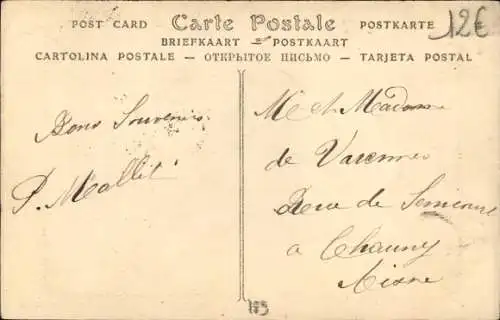 POST CARD Carte Postale POSTKARTE
12€
BRIEFKAART POSTKAART
CARTOLINA POSTALE — ОТКРЫТОЕ ПИСЬМО — TARJETA POSTAL
Bons Souvenirs
P. Mallet
M et Madame
de Varennes
Rue de
a Chauny
Aisne